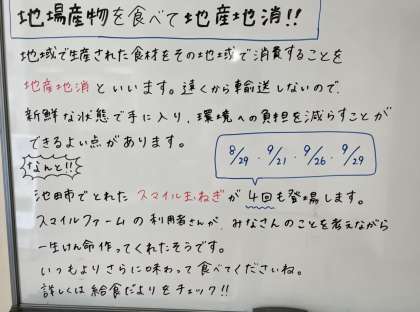 地場産物を食べて地産地消!!
地域で生産された食材をその地域で消費することを
地産地消といいます。遠くから車輸送しないので、
新鮮な状態で手に入り、環境への負担を減らすことが
できるよい点があります。
8/29・9/21・9/26・9/29
なんと!!
池田市でとれたスマイル玉ねぎが4回も登場します。
スマイルファームの利用者さんが、みなさんのことを考えながら
一生けん命作ってくれたそうです。
いつもよりさらに味わって食べてくださいね。
詳しくは給食だよりをチェック!!